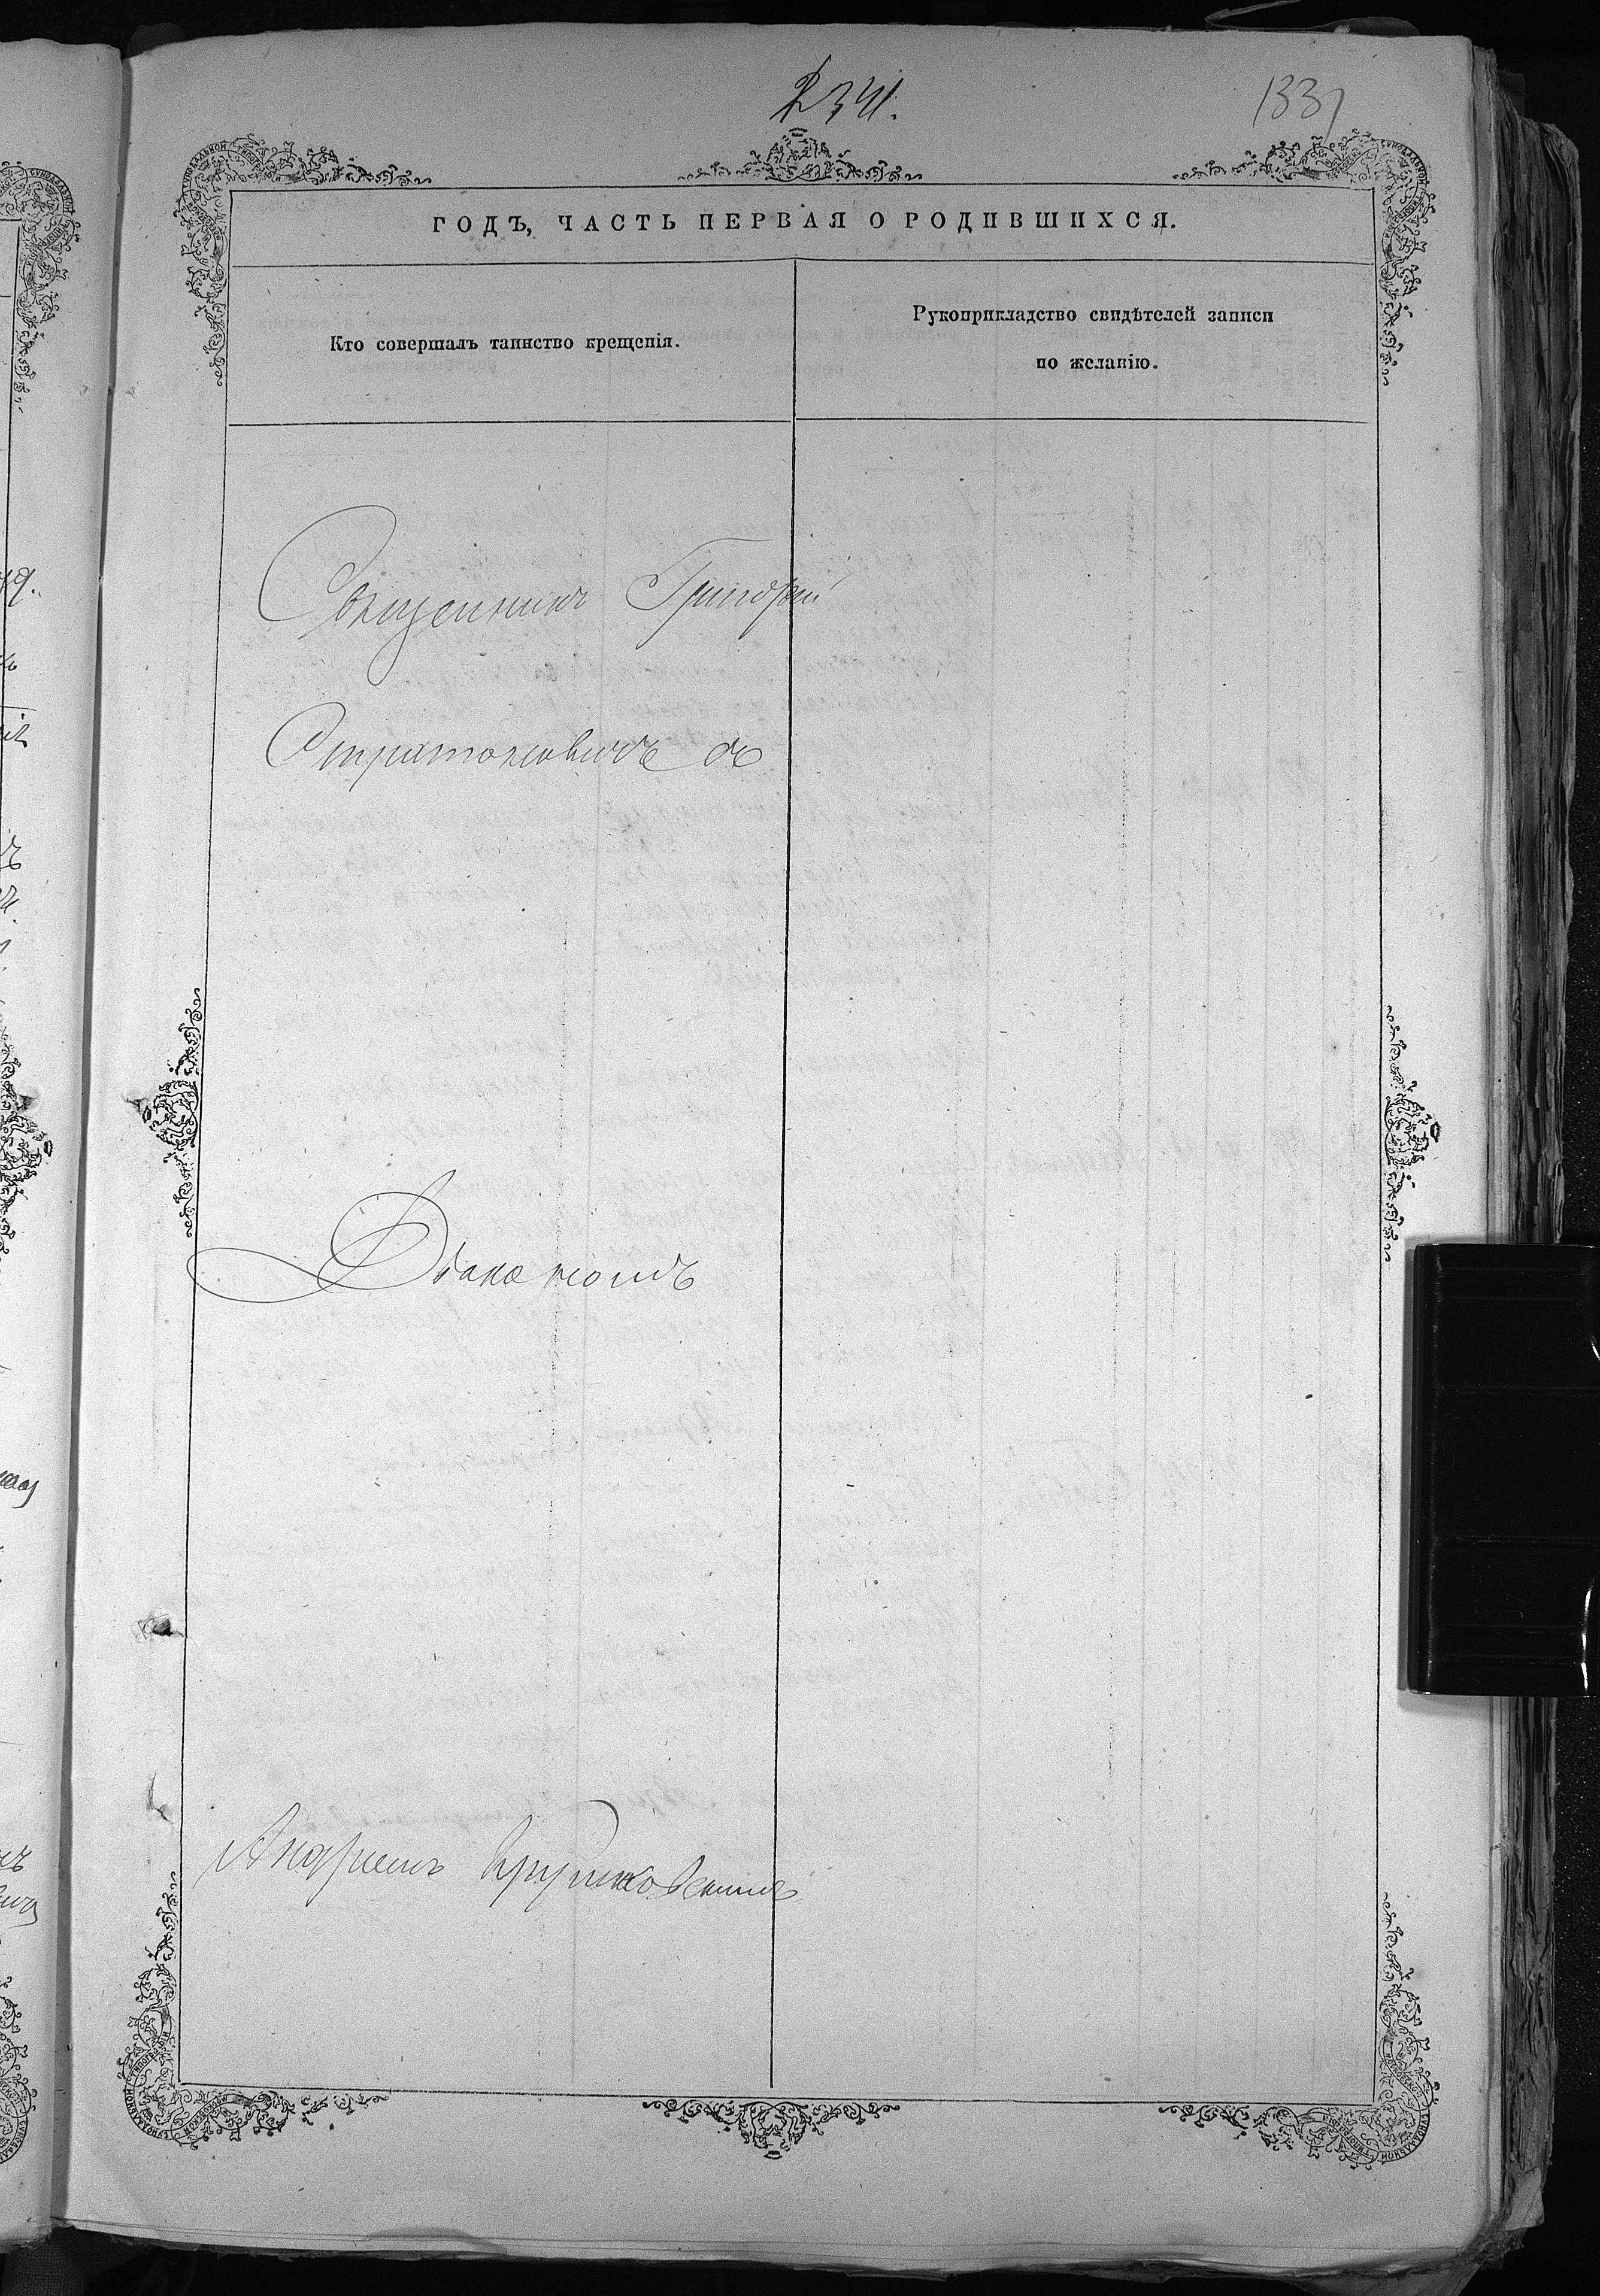 234.
133
ГОДЪ, ЧАСТЬ ПЕРВАЯ О РОДИВШИХСЯ.
Кто совершалъ таинство крещенія.
Рукоприкладство свидѣтелей записи
по желанію.
Священникъ Григорій
Стратоновичъ съ
Діакономъ
Андреемъ